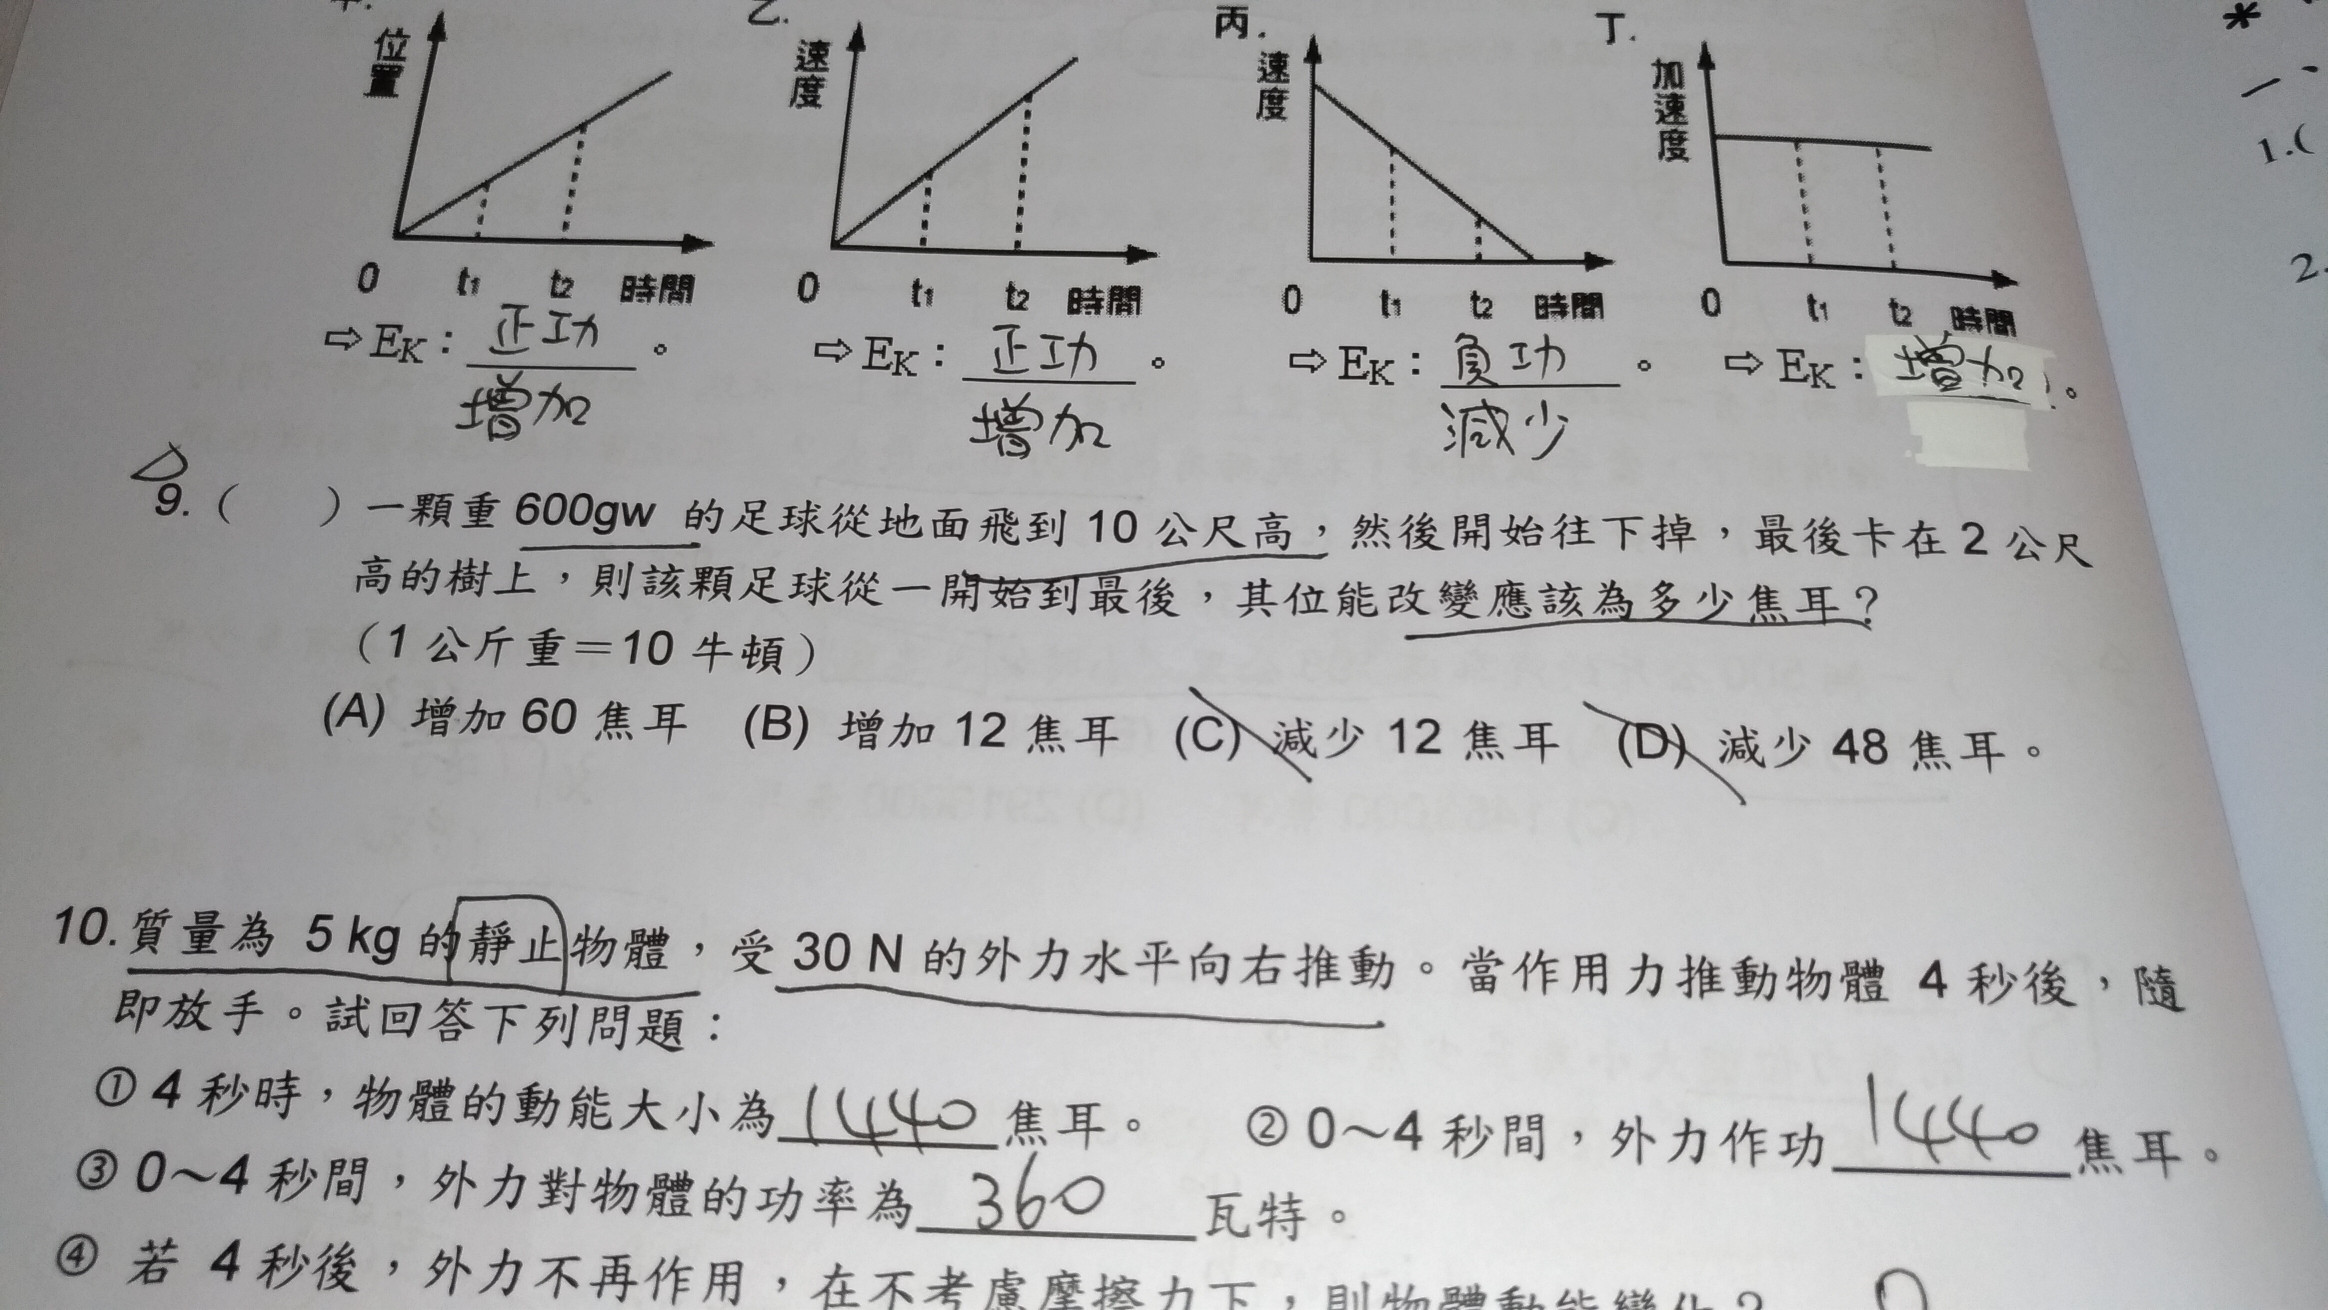 乙. 丙. 丁.
位置 速度 速度 加速度
0 t1 t2 時間 0 t1 t2 時間 0 t1 t2 時間 0 t1 t2 時間
⇨ EK：正功。 ⇨ EK：正功。 ⇨ EK：負功。 ⇨ EK：增加。
增加 增加 減少
9.（ ）一顆重 600gw 的足球從地面飛到 10 公尺高，然後開始往下掉，最後卡在 2 公尺
高的樹上，則該顆足球從一開始到最後，其位能改變應該為多少焦耳？
（1 公斤重＝10 牛頓）
(A) 增加 60 焦耳 (B) 增加 12 焦耳 (C) 減少 12 焦耳 (D) 減少 48 焦耳。
10.質量為 5 kg 的靜止物體，受 30 N 的外力水平向右推動。當作用力推動物體 4 秒後，隨
即放手。試回答下列問題：
① 4 秒時，物體的動能大小為1440焦耳。 ② 0～4 秒間，外力作功1440焦耳。
③ 0～4 秒間，外力對物體的功率為360瓦特。
④ 若 4 秒後，外力不再作用，在不考慮摩擦力下，則物體動能變化？
*
一、
1.(
2.